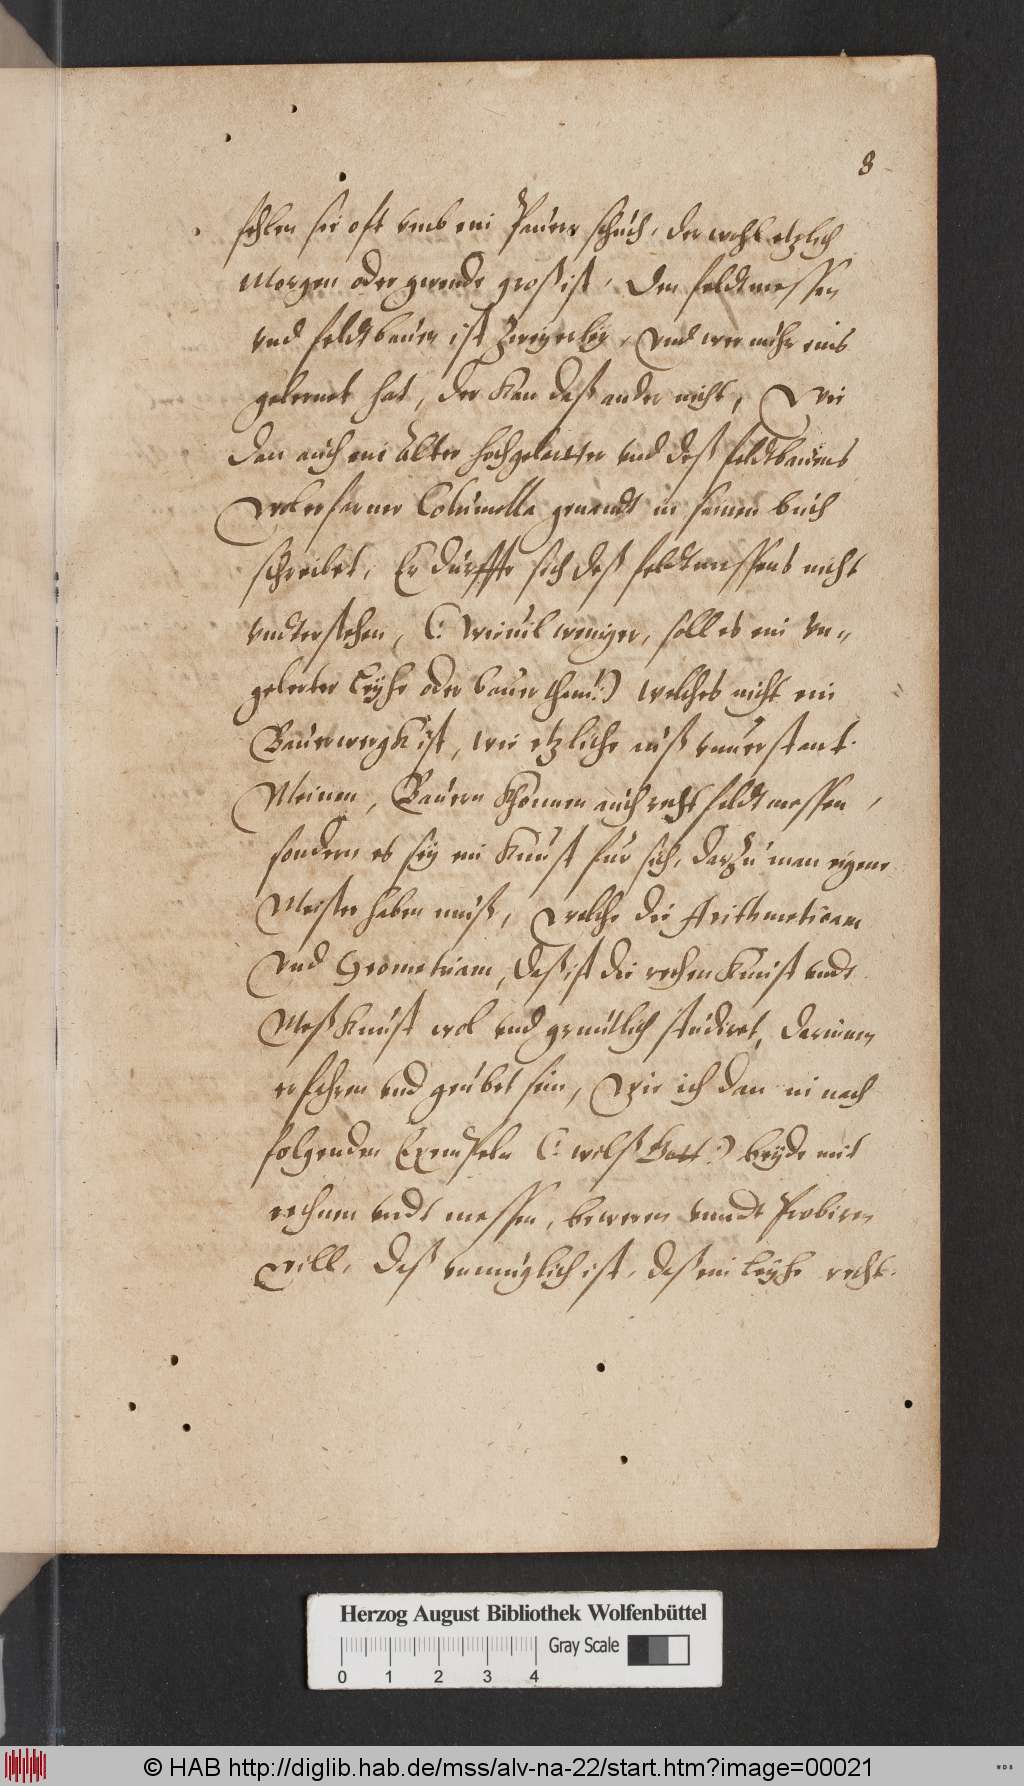 8
fehlen sie oft vmb ein Pauren schüch, der wohl etzlich
Morgen oder gewende groß ist, Den feldtmessen
vnd feldtbauen ist Zweyerley, vnd wer nuhr eins
gelernet hat, der kan daß ander nicht, Wie
dan auch ein Alter hochgelerter vnd deß feldtbauens
Wolerfarner Columella genandt in seinem büch
schreibet, Er dürffte sich deß feldtmessens nicht
vndterstehen, (: Wieuil weniger, soll es ein vn-
gelerter Leyhe oder bauer thun :) welches nicht ein
Bauerwergk ist, wie etzliche auß vnuerstant
Meinen, Bauern khönnen auch recht feldtmessen,
sondern es seÿ ein Kunst für sich, darzu man eigene
Meister haben muß, welche die Arithmeticam
vnd Geometriam, daß ist die rechen Kunst vndt
Meß Kunst wol vnd grüntlich studiret, darinnen
erfahren vnd geübet sein, Wie ich dan in nach
folgenden Exempeln (: wilß Gott :) beÿde mit
rechnen vndt messen, beweren vnndt Probiren
will, daß vnmüglich ist, daß ein Leyhe recht
Herzog August Bibliothek Wolfenbüttel
Gray Scale
0 1 2 3 4
© HAB http://diglib.hab.de/mss/alv-na-22/start.htm?image=00021